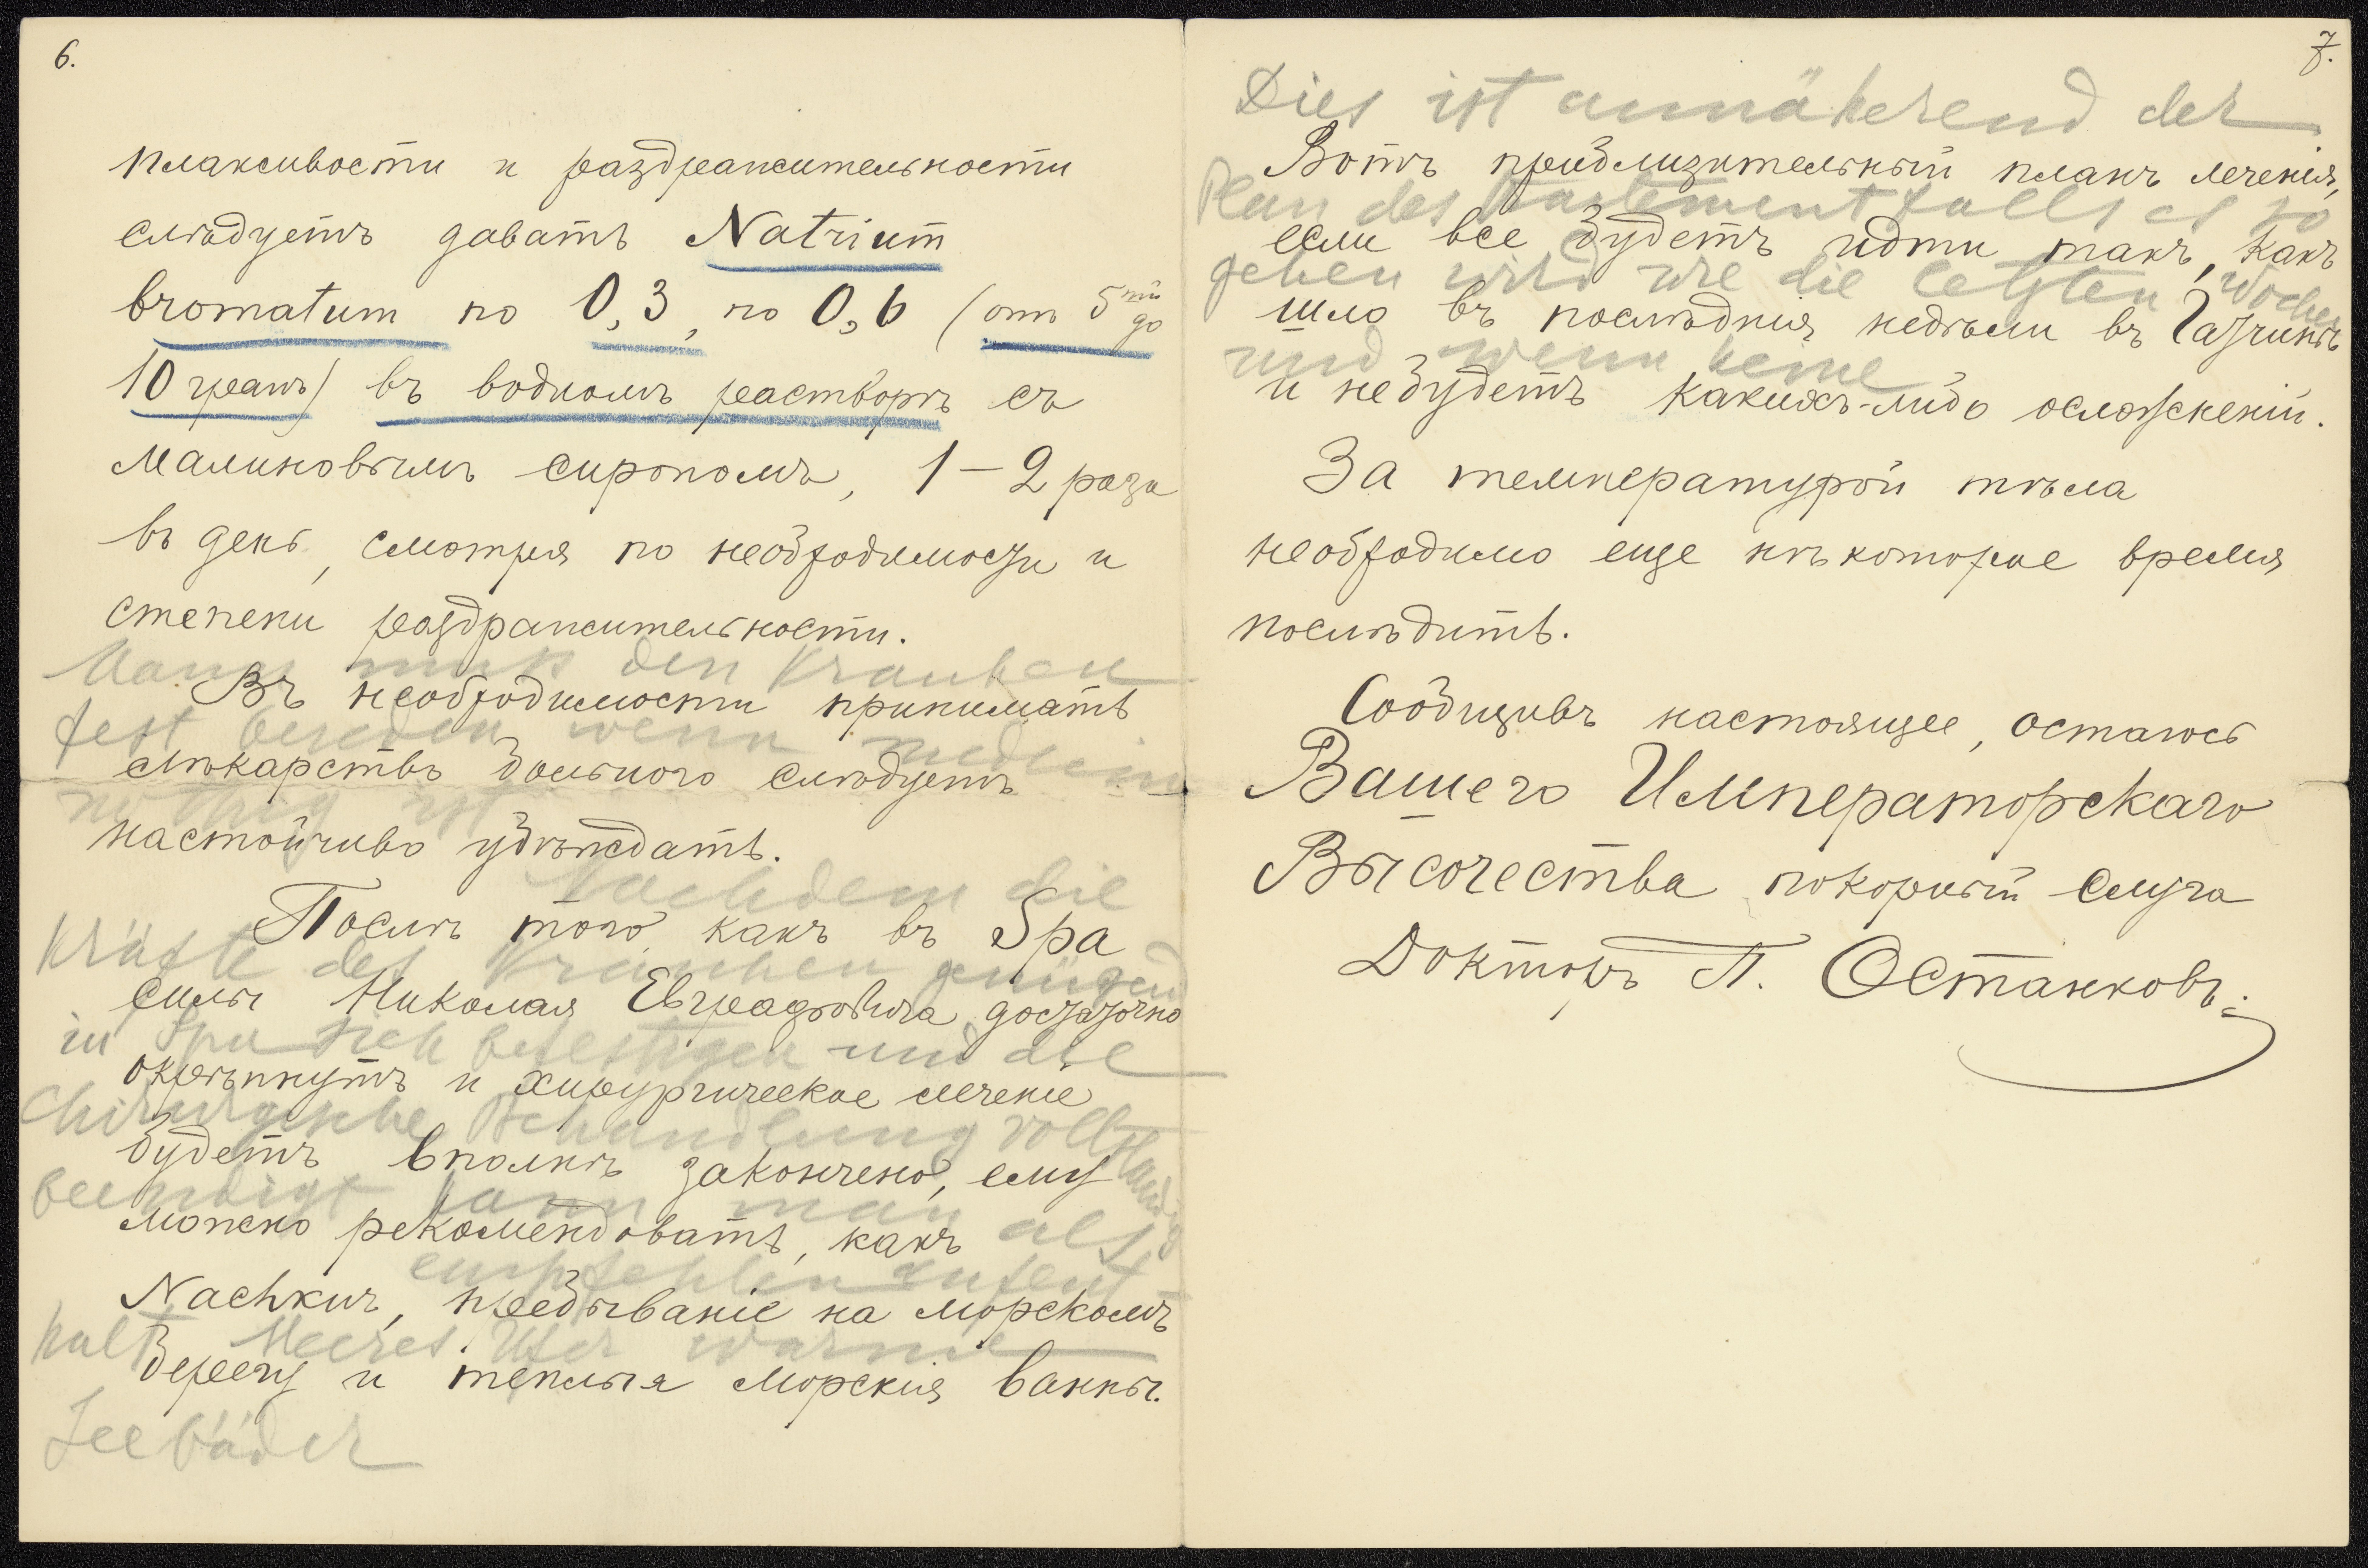 6.
плаксивости и раздражительности
слѣдуетъ давать Natrium
bromatum по 0,3, по 0,6 (отъ 5ти до
10 гранъ) въ водномъ растворѣ съ
малиновымъ сиропомъ, 1–2 раза
въ день, смотря по необходимости и
степени раздражительности.
Man muss den Kranken
Въ необходимости принимать
fest bereden wenn medicin
лѣкарство больного слѣдуетъ
nöthig ist
настойчиво убѣждать.
Nachdem die
Послѣ того, какъ въ Spa
Kräfte des Kranken genügend
силы Николая Евграфовича достаточно
in Spa sich befestigen und die
окрѣпнутъ и хирургическое леченіе
chirurgische Behandlung vollständig
будетъ вполнѣ закончено, ему
beendigt kann man als
можно рекомендовать, какъ
empfehlen aufent
Nachkur, пребываніе на морскомъ
halt Meeres Ufer warme
берегу и теплыя морскія ванны.
Seebäder
7.
Dies ist annäherend der
Вотъ приблизительный планъ леченія,
Plan des falls es so
если все будетъ идти такъ, какъ
gehen wird wie die letzten Wochen
шло въ послѣднія недѣли въ Гатчинѣ
und wenn keine
и не будетъ какихъ-либо осложненій.
За температурой тѣла
необходимо еще нѣкоторое время
послѣдить.
Сообщивъ настоящее, остаюсь
Вашего Императорскаго
Высочества покорный слуга
Докторъ П. Останковъ.